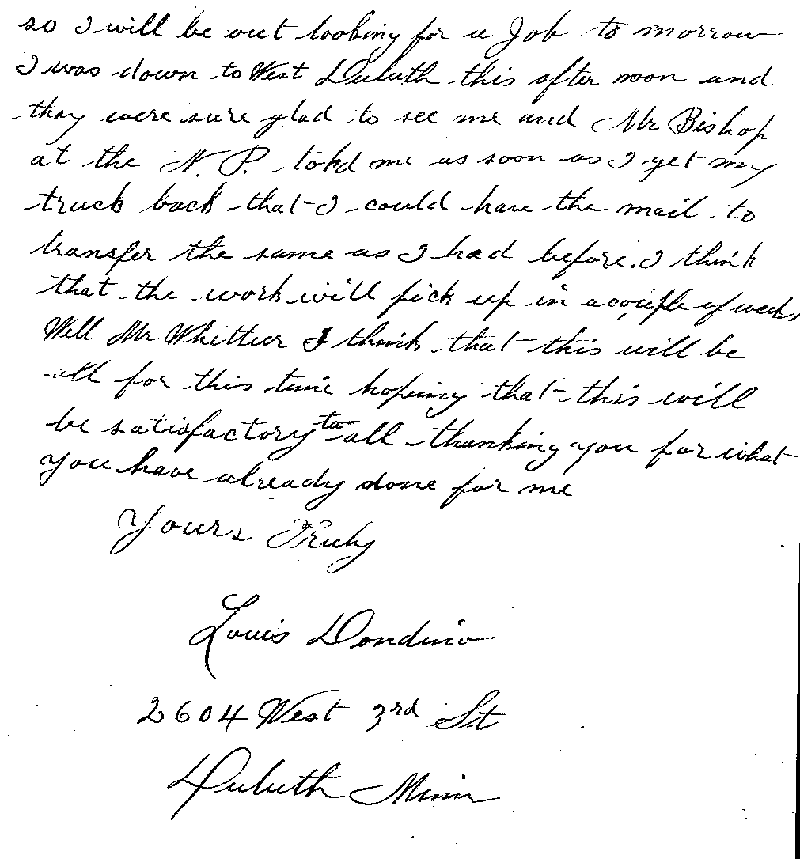 so I will be out looking for a Job to morrow
I was down to West Duluth this after noon and
they were sure glad to see me and Mr Bishop
at the N. P. told me as soon as I get my
truck back that I could have the mail to
transfer the same as I had before. I think
that the work will pick up in a couple of weeks
Well Mr Whittier I think that this will be
all for this time hoping that this will
be satisfactory to all thanking you for what
you have already done for me
Yours Truly
Louis Dondino
2604 West 3rd St
Duluth Minn